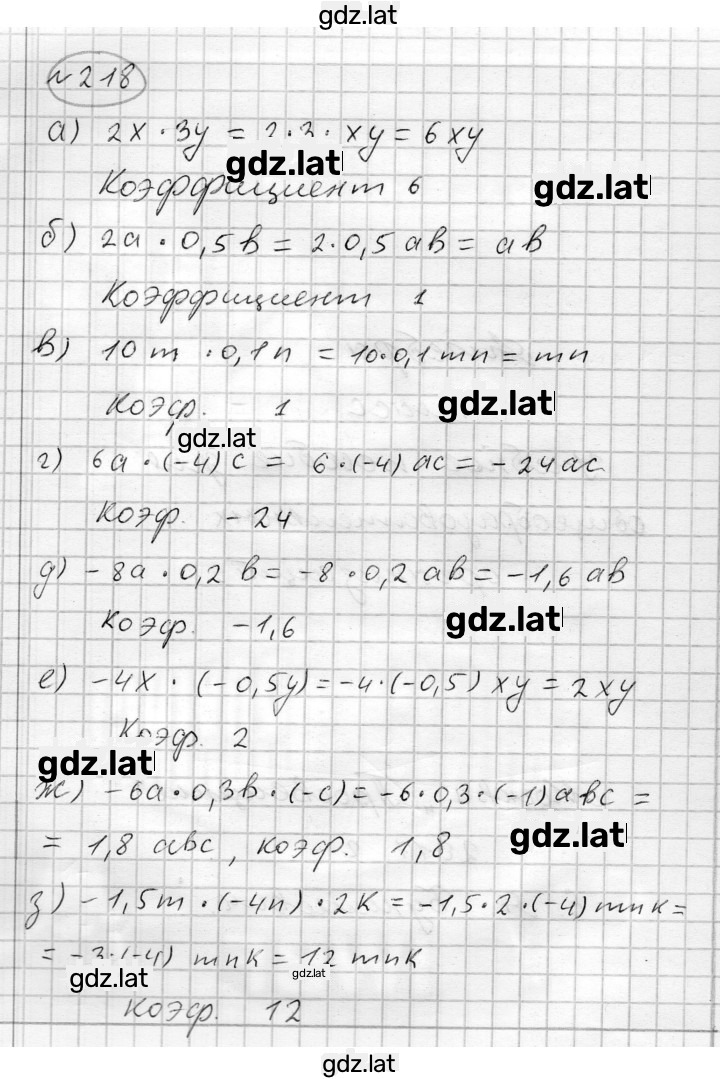 gdz.lat
№218
а) 2x · 3y = 2·3· xy = 6xy
gdz.lat
Коэффициент 6
gdz.lat
б) 2a · 0,5b = 2·0,5 ab = ab
Коэффициент 1
в) 10m · 0,1n = 10·0,1 mn = mn
Коэф. 1
gdz.lat
gdz.lat
г) 6a · (-4)c = 6·(-4) ac = -24ac
Коэф. -24
д) -8a · 0,2 b = -8 · 0,2 ab = -1,6 ab
Коэф. -1,6
gdz.lat
е) -4x · (-0,5y) = -4·(-0,5) xy = 2xy
Коэф. 2
gdz.lat
ж) -6a · 0,3b · (-c) = -6·0,3·(-1) abc =
= 1,8 abc, коэф. 1,8
gdz.lat
з) -1,5m · (-4n) · 2k = -1,5·2·(-4) mnk =
= -3·(-4) mnk = 12 mnk
gdz.lat
gdz.lat
Коэф. 12
gdz.lat